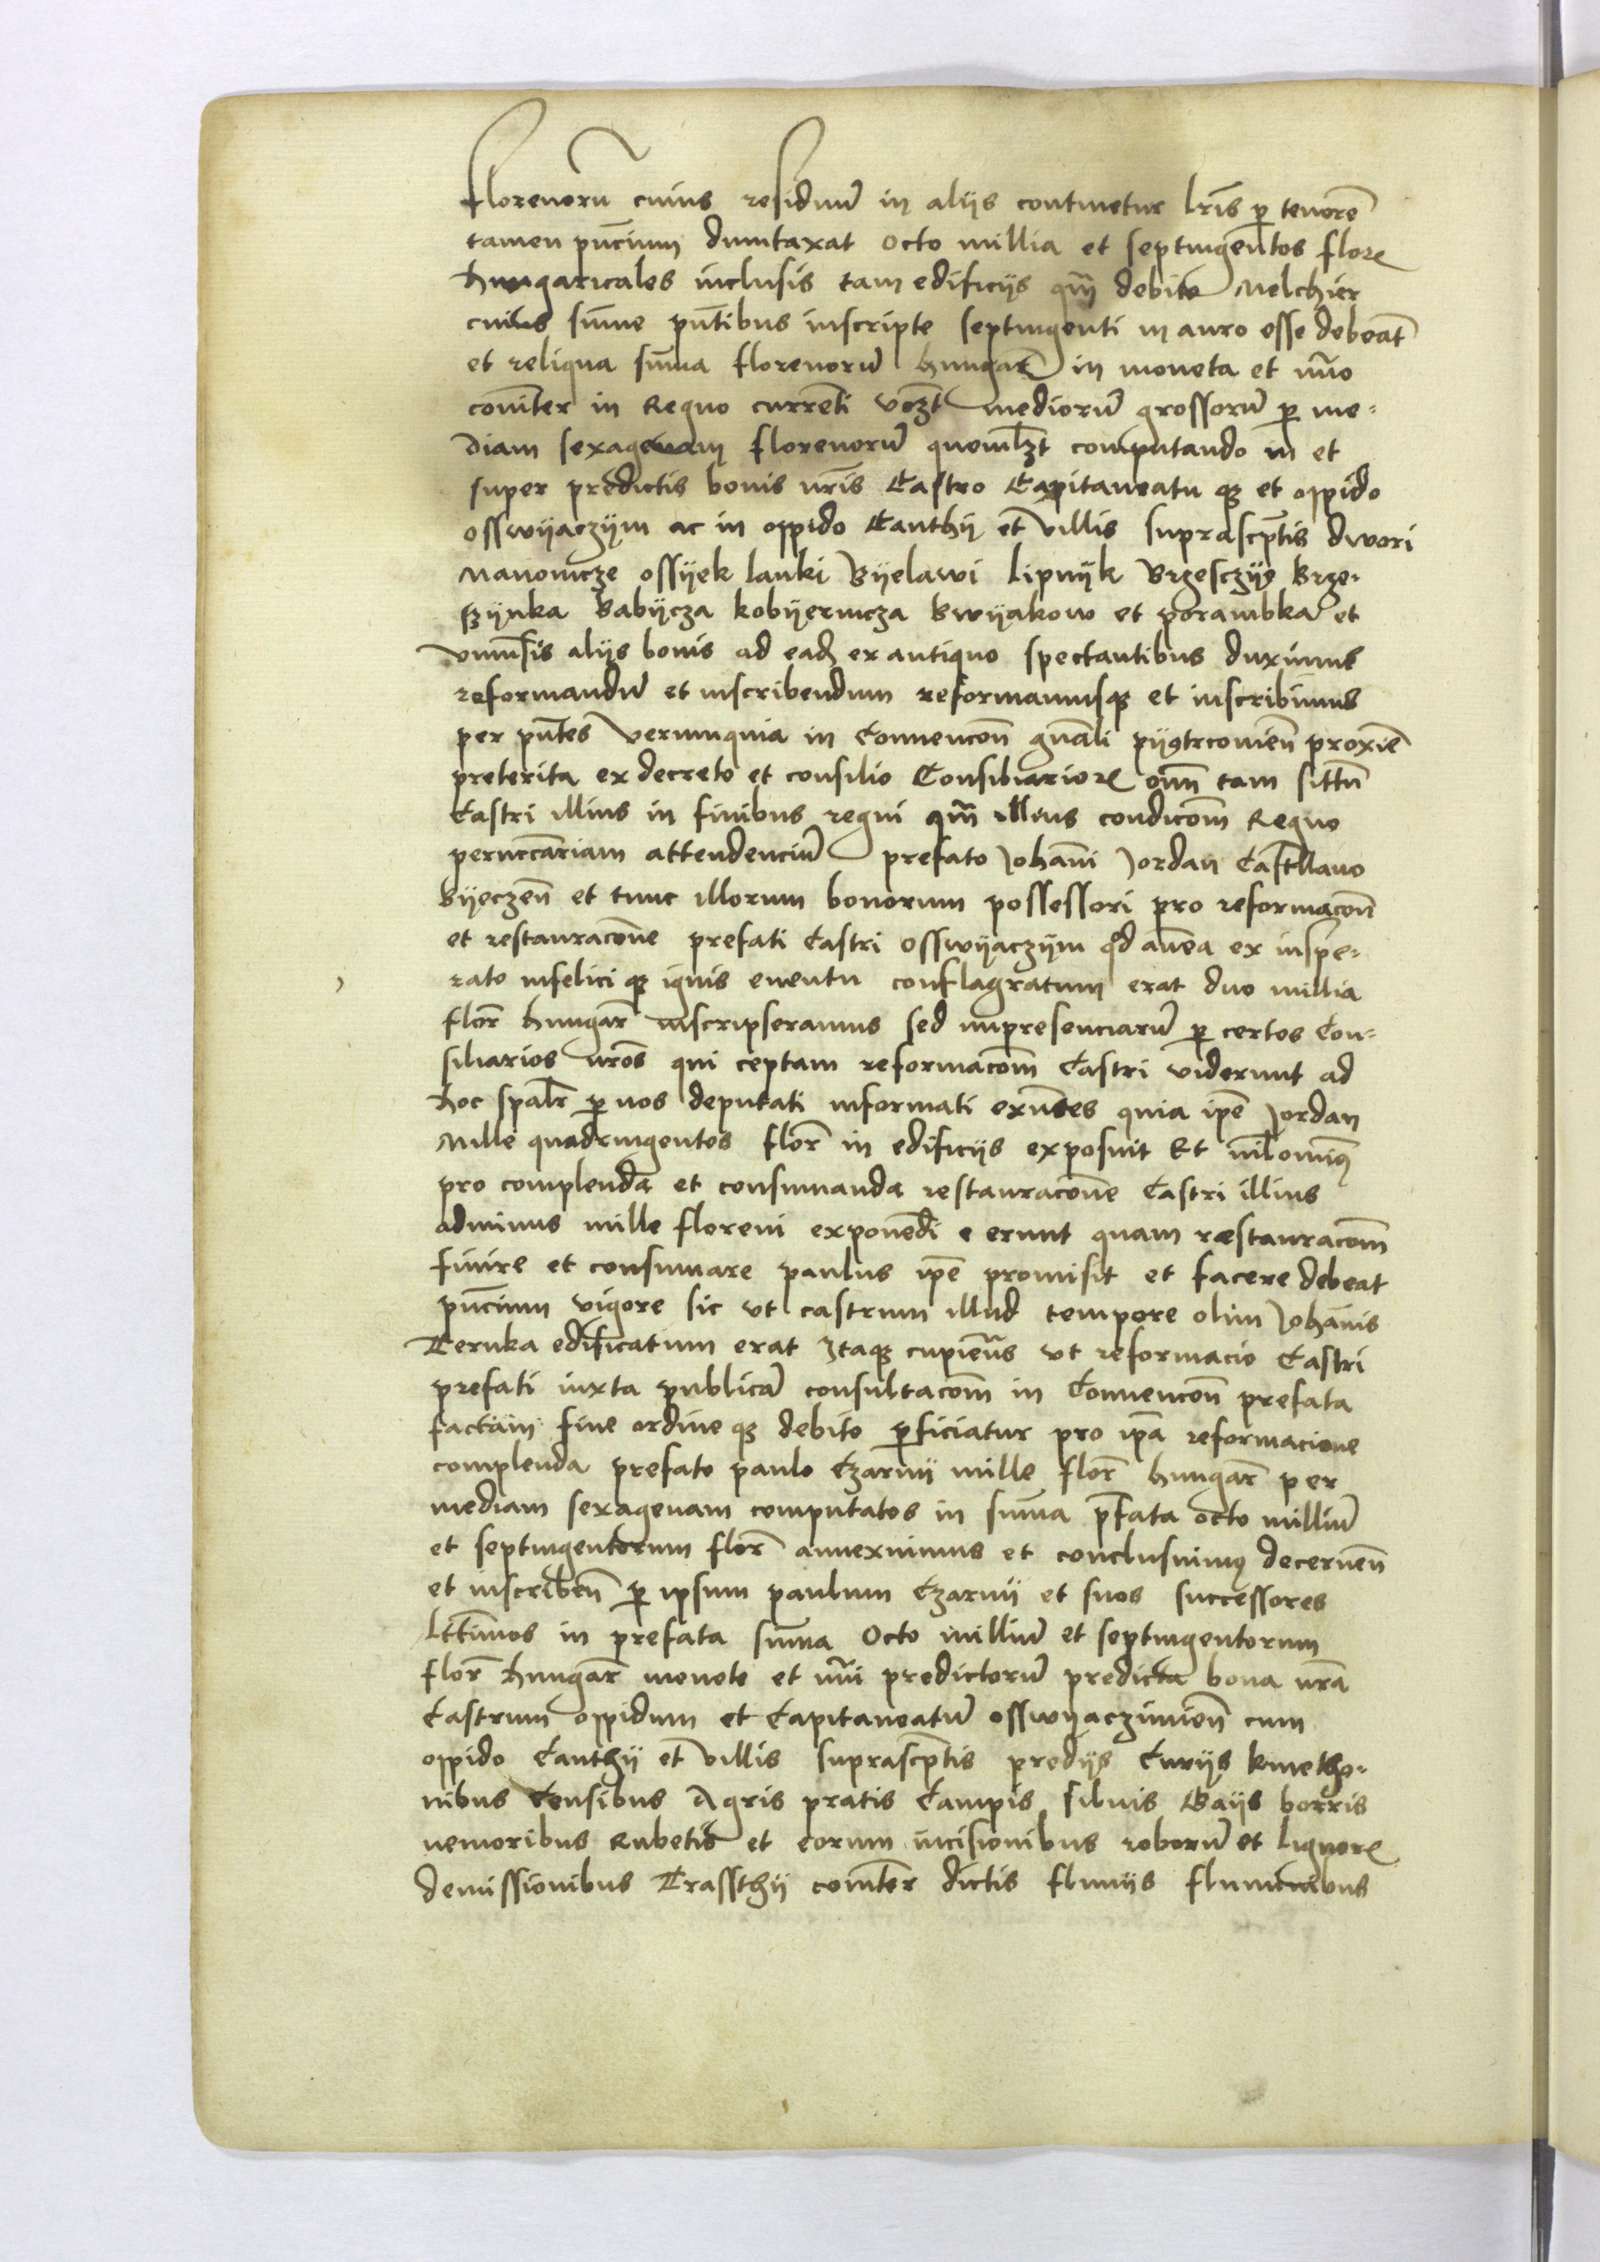 florenorū cuius residuū in alijs continetur lrīs p tenorē
tamen pn̄cium dumtaxat octo millia et septingentos flore
hungaricales inclusis tam edificijs qm̄ debito Melchier
cuius sūme pn̄tibus inscripte septingenti in auro esse debeāt
et reliqua sūma florenorū hungar̄ in moneta et nūo
com̄iter in Regno currēti vczt mediorū grossorū p me-
diam sexagenam florenorū quemlzt computando in et
super predictis bonis nrīs Castro Capitaneatu qz et oppido
osswyaczym ac in oppido Canthy et villis suprascp̄tis dwori
Manowicze ossyek lanki Byelani lipnyk Brzesczye Brze-
szynka Babycza kobyernicza Bwyakow et porambka et
vniūsis alijs bonis ad eadz ex antiquo spectantibus duximus
reformandū et inscribendum reformamusqz et inscribimus
per pn̄tes verumquia in Conuencōn gn̄ali pyotrcouieñ proxiē
preterita ex decreto et consilio Consiliarior̄ om̄n tam sittū
Castri illius in finibus regni qm̄ illius condicōm Regno
pernccāriam attendenciū prefato Johanī Jordan Castllano
Byeczeñ et tunc illorum bonorum possessori pro reformacōn
et restauracōne prefati Castri osswyaczym qd añea ex inspe-
rato infelici qz ignis euentu conflagratum erat duo millia
flor̄ hungar̄ inscripseramus sed inpresenciarū p certos Con-
siliarios nros qui ceptam reformacōm Castri viderunt ad
hoc spalr̄ p nos deputati informati exn̄tes quia ipē Jordan
Mille quadringentos flor̄ in edificijs exposuit Et nīlominꝰ
pro complenda et consumanda restauracōne Castri illius
adminus mille floreni exponēdi e erunt quam restauracōm
finire et consumare paulus ipē promisit et facere debeat
pn̄cium vigore sic vt castrum illud tempore olim Johānis
Teruka edificatum erat Itaqz cupieñs vt reformacio Castri
prefati iuxta publicā consultacōm in Conuencōn prefata
factam fine ordine qz debito pficiatur pro ipā reformacione
complenda prefato paulo Czarny mille flor̄ hungar̄ per
mediam sexagenam computatos in sūma pfata octo milliū
et septingentorum flor̄ annexuimus et conclusuimꝰ decerneñ
et inscribeñ p ipsum paulum Czarny et suos successores
lttīmos in prefata sūma Octo milliū et septingentorum
flor̄ hungar̄ monete et nūi predictorū predicta bona nrā
Castrum oppidum et Capitaneatū osswyaczimieñ cum
oppido Canthy et villis suprascp̄tis predijs Curijs kmetho-
nibus Censibus Agris pratis Campis siluis Gaijs borris
nemoribus Rubetis et eorum incisionibus roborū et lignor̄
demissionibus Trassthy com̄iter dictis fluuijs fluminibus